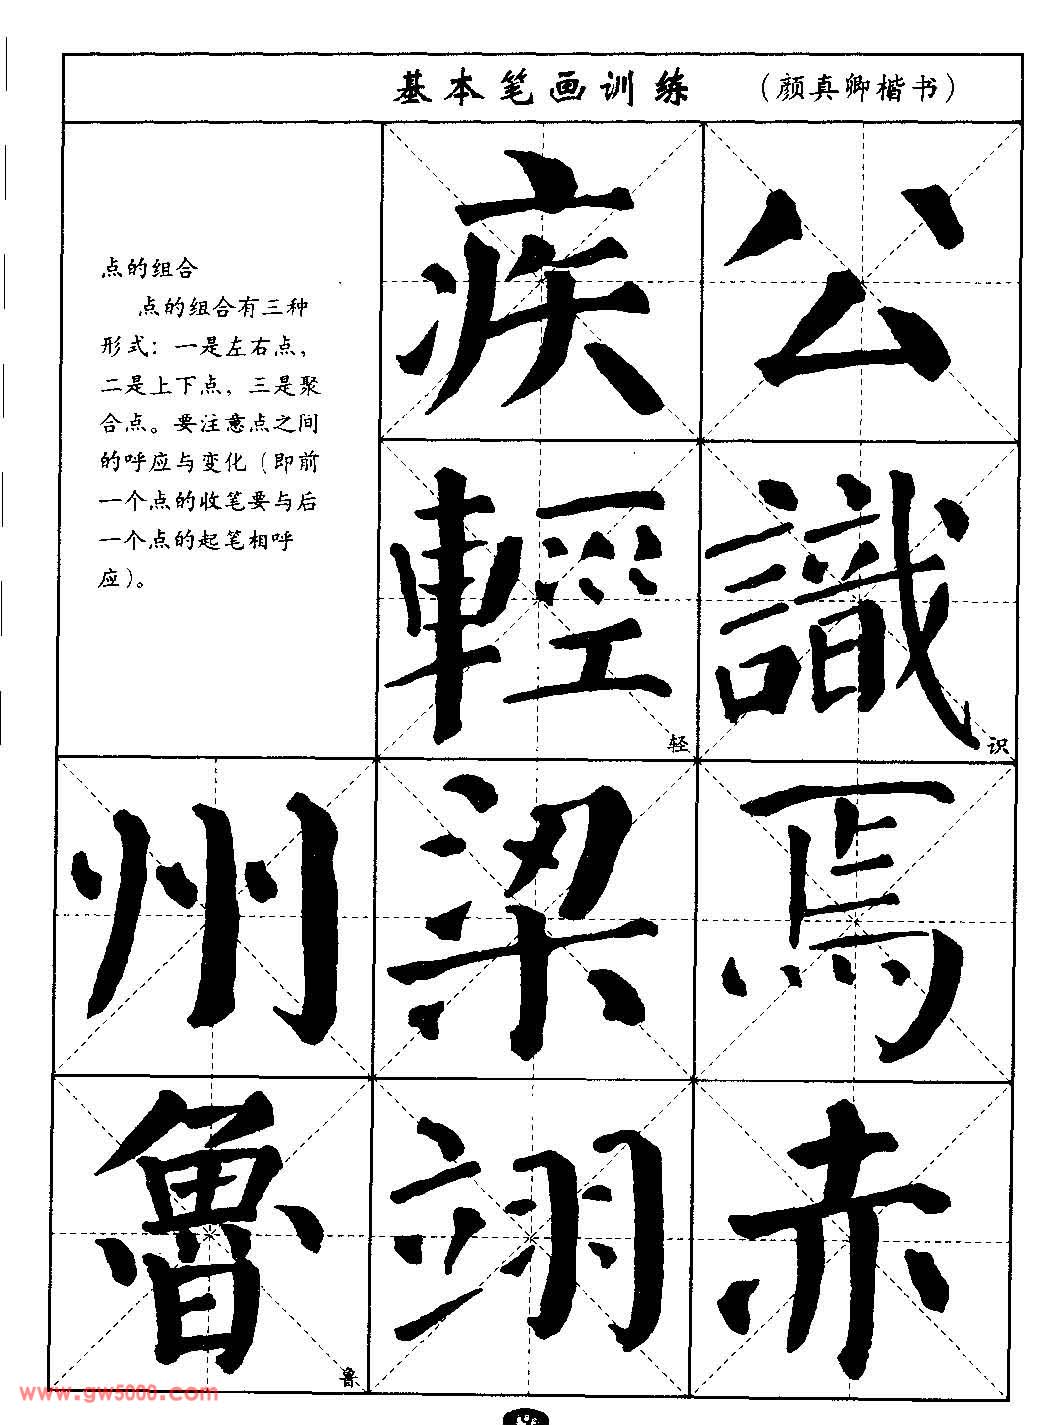 基本笔画训练 (颜真卿楷书)
点的组合
点的组合有三种
形式：一是左右点，
二是上下点，三是聚
合点。要注意点之间
的呼应与变化（即前
一个点的收笔要与后
一个点的起笔相呼
应）。
疾 公
輕 轻 識 识
州 梁 焉
魯 鲁 翊 赤
www.gw5000.com